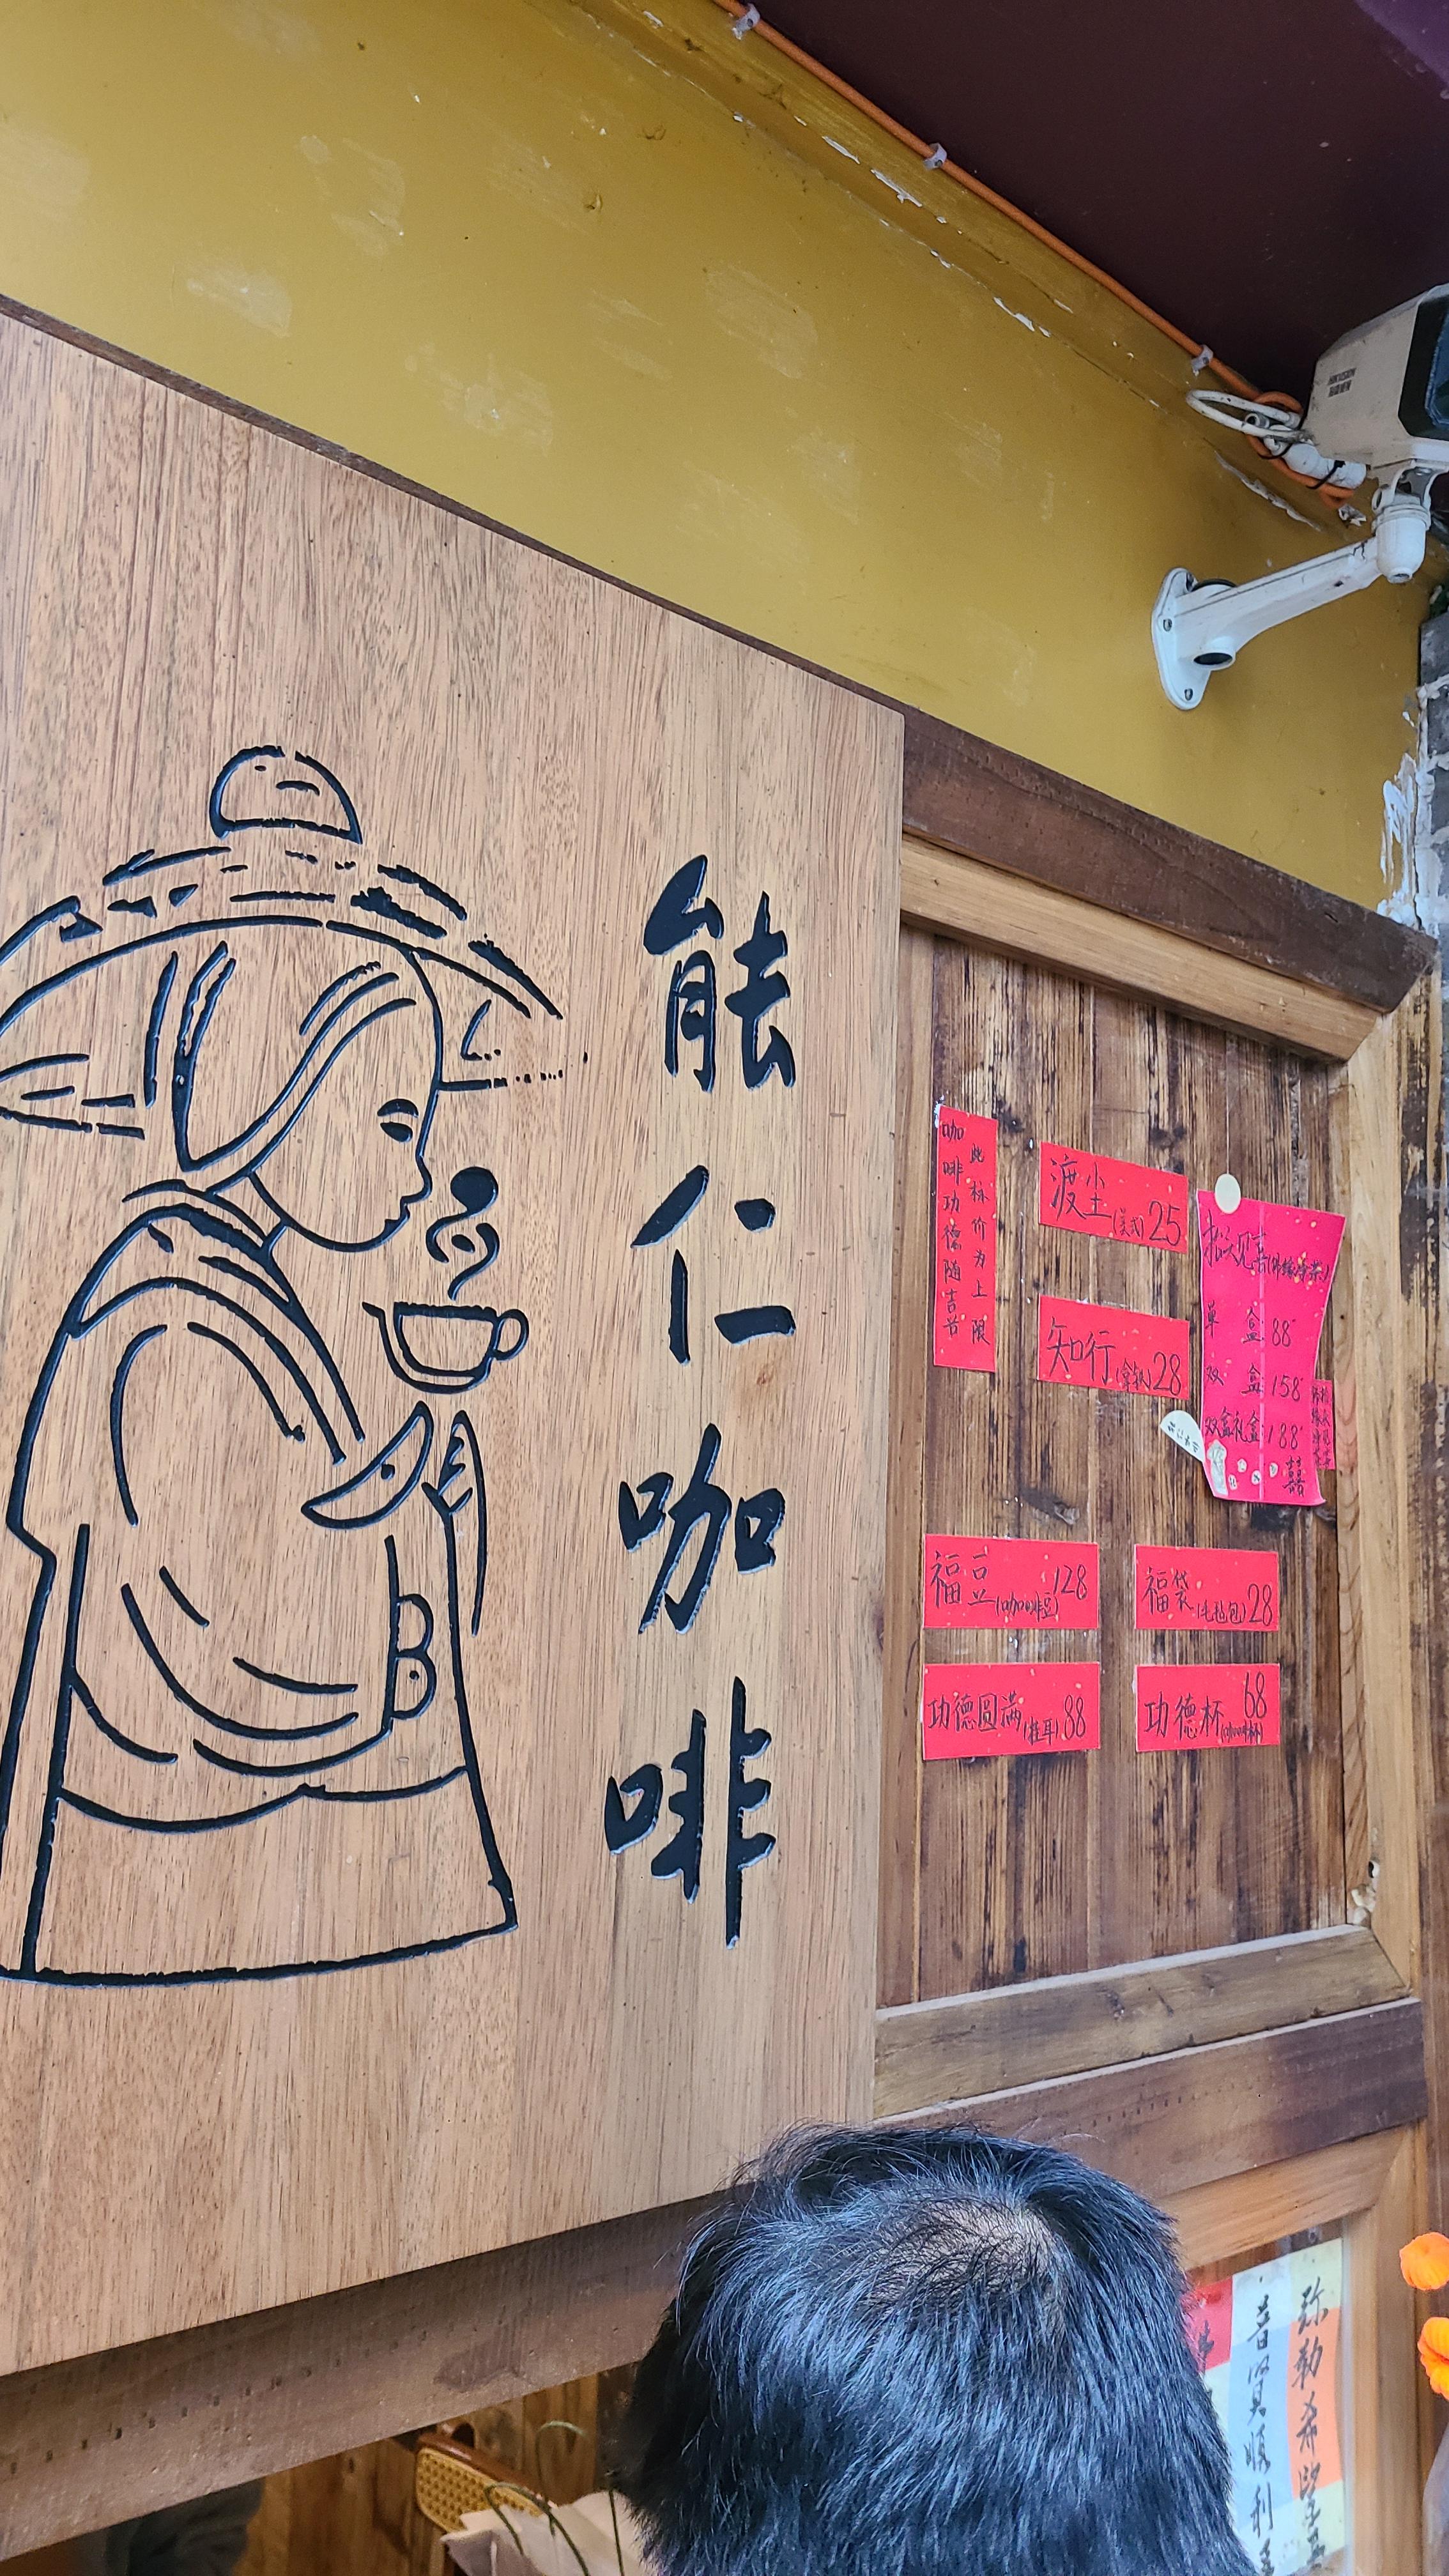 能仁咖啡
此标价为上限
咖啡功德随喜
渡尘(美式)25
知行(拿铁)28
单盒 88
双盒 158
双盒礼盒 188
囍
福豆(咖啡豆)128
福袋(毛毡包)28
功德圆满(挂耳)88
功德杯(咖啡杯)68
HIKVISION
弥勒希望
普贤顺利